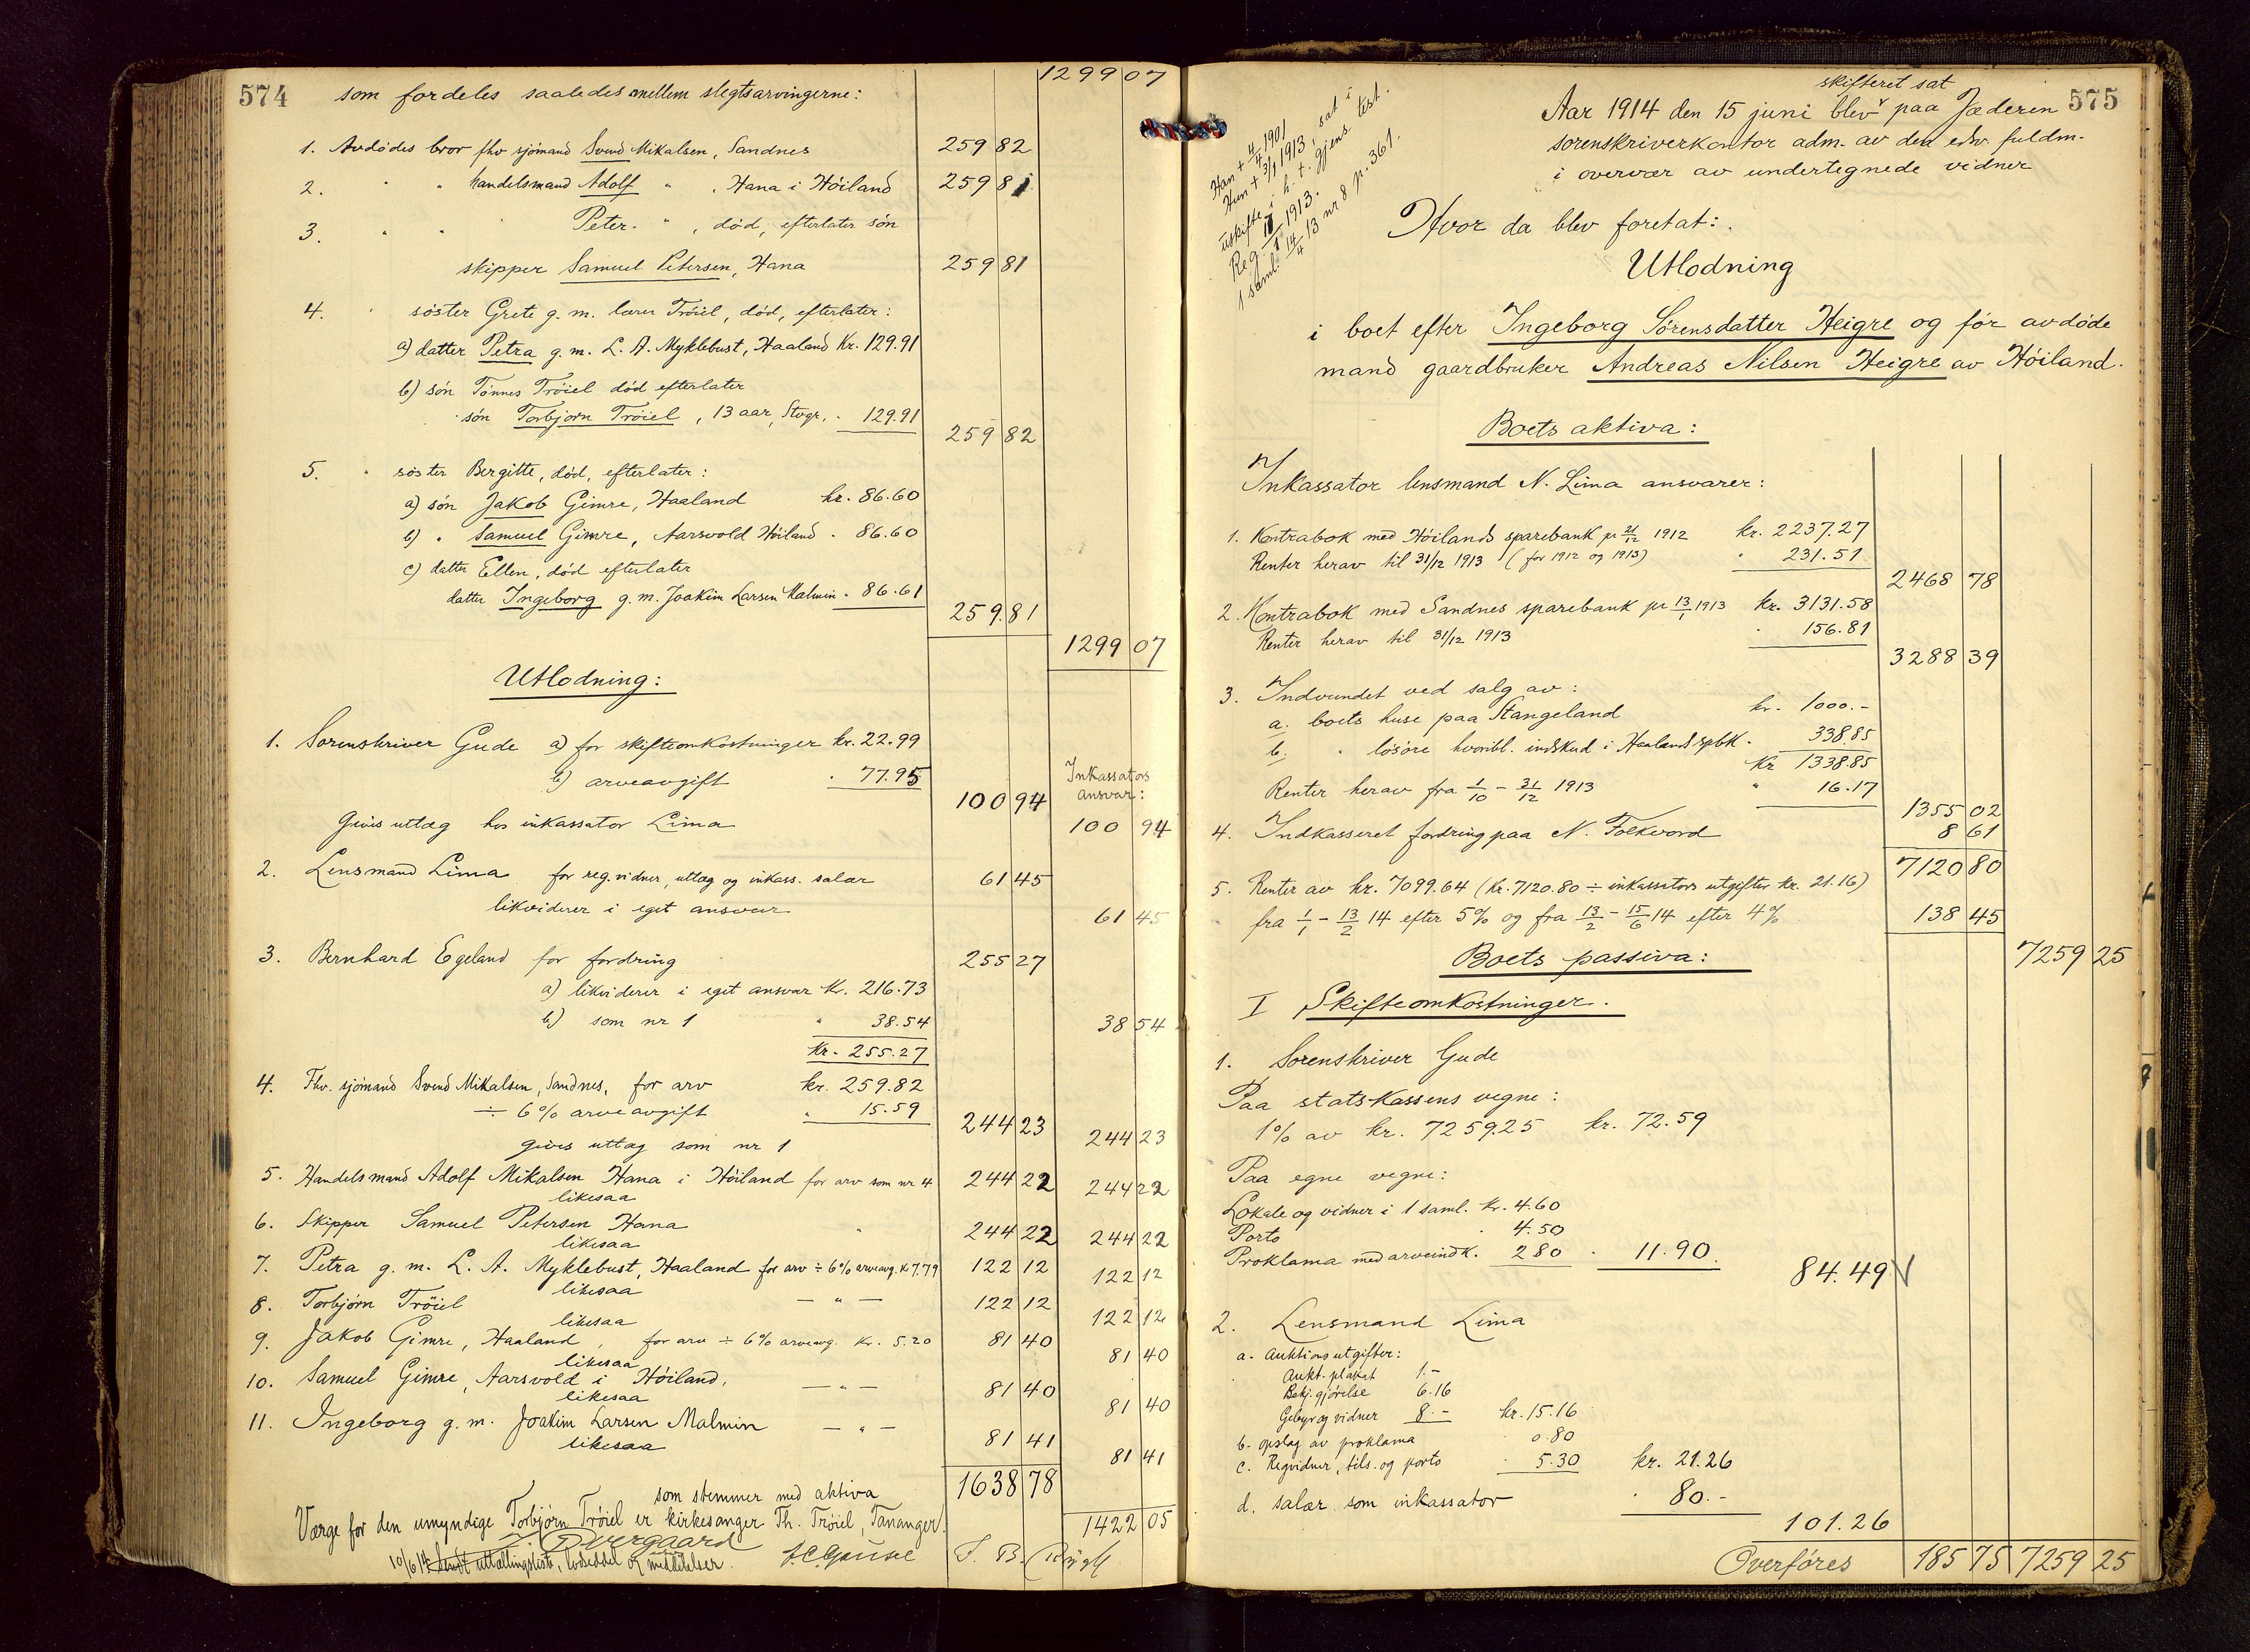 574
1299 07
som fordeles saaledes mellem slegtsarvingerne:
1. Avdödes bror fhv sjömand Svend Mikalsen, Sandnes 259 82
2. " " handelsmand Adolf " , Hana i Höiland 259 81
3. " " Peter " , död, efterlater sön
skipper Samuel Petersen, Hana 259 81
4. " söster Grete g. m. lærer Tröiel, död, efterlater:
a) datter Petra g. m. L. A. Myklebust, Haaland Kr. 129.91
b) sön Tönnes Tröiel död efterlater
sön Torbjörn Tröiel, 13 aar, Stvgr. - 129.91
259 82
5. " söster Bergitte, död, efterlater:
a) sön Jakob Gimre, Haaland kr. 86.60
b) " Samuel Gimre, Aarsvold Höiland - 86.60
c) datter Ellen, död efterlater
datter Ingeborg g. m. Joakim Larsen Malmin - 86.61
259.81
1299 07
Utlodning:
1. Sorenskriver Gude a) for skifteomkostninger kr. 22.99
b) arveavgift - 77.95
100 94
Inkassators ansvar:
Givis utlæg hos inkassator Lima 100 94
2. Lensmand Lima for reg.vidner, utlæg og inkass. salær 61 45
likviderer i eget ansvar 61 45
3. Bernhard Egeland for fordring 255 27
a) likviderer i eget ansvar Kr. 216.73
b) som nr 1 " 38.54 38 54
Kr. 255.27
4. Fhv. sjömand Svend Mikalsen, Sandnes, for arv kr. 259.82
÷ 6% arveavgift " 15.59
244 23
givis utlæg som nr 1 244 23
5. Handelsmand Adolf Mikalsen Hana i Höiland for arv som nr 4 244 22
likesaa 244 22
6. Skipper Samuel Petersen Hana " 244 22
likesaa 244 22
7. Petra g. m. L. A. Myklebust, Haaland for arv ÷ 6% arveavg. Kr 7.79 122 12
likesaa 122 12
8. Torbjörn Tröiel — " — 122 12
likesaa 122 12
9. Jakob Gimre, Haaland, for arv ÷ 6% arveavg. Kr. 5.20 81 40
likesaa 81 40
10. Samuel Gimre, Aarsvold i Höiland, — " — 81 40
likesaa 81 40
11. Ingeborg g. m. Joakim Larsen Malmin — " — 81 41
likesaa 81 41
1638 78
som stemmer med aktiva
1422 05
Værge for den umyndige Torbjörn Tröiel er kirkesanger Th. Tröiel, Tananger.
Övergaard
10/6 14 Sendt utlæg
575
skifteret sat
Aar 1914 den 15 juni blev paa Jæderen
sorenskriverkontor adm. av den edsv. fuldm.
i overvær av undertegnede vidner
Han + 4/4 1901
Hun + 3/1 1913, sat i
uskifte i h. t. gjens. test.
Reg. 1913.
1 saml. 14/4 13 nr 8 p. 361.
Hvor da blev foretat:
Utlodning
i boet efter Ingeborg Sörensdatter Heigre og för avdöde
mand gaardbruker Andreas Nilsen Heigre av Höiland.
Boets aktiva:
Inkassator lensmand N. Lima ansvarer:
1. Kontrabok med Höilands sparebank pr 21/12 1912 kr. 2237.27
Renter herav til 31/12 1913 (for 1912 og 1913) " 231.51
2468 78
2. Kontrabok med Sandnes sparebank pr 13/1 1913 kr. 3131.58
Renter herav til 31/12 1913 " 156.81
3288 39
3. Indvundet ved salg av:
a. boets huse paa Stangeland kr. 1000.-
b. " lösöre hvoribl. indskud i Haalands spbk - 338.85
Kr 1338.85
Renter herav fra 1/10 - 31/12 1913 " 16.17
1355 02
4. Indkasseret fordring paa N. Folkvord 8 61
7120 80
5. Renter av kr. 7099.64 (Kr. 7120.80 ÷ inkassators utgifter kr. 21.16)
fra 1/1 - 13/2 14 efter 5% og fra 13/2 - 15/6 14 efter 4% 138 45
7259 25
Boets passiva:
I Skifteomkostninger.
1. Sorenskriver Gude
Paa statskassens vegne:
1% av kr. 7259.25 kr. 72.59
Paa egne vegne:
Lokale og vidner i 1 saml. Kr. 4.60
Porto " 4.50
Proklama med arveindk. 2 80 - 11.90
84.49
2. Lensmand Lima
a. Auktionsutgifter:
Aukt. plakat 1.-
Bekj.gjörelse 6.16
Gebyr og vidner 8.- kr. 15.16
b. opslag av proklama 0.80
c. Regvidner, tils. og porto 5.30 kr. 21.26
d. salær som inkassator " 80.-
101.26
Overföres 185 75 7259 25